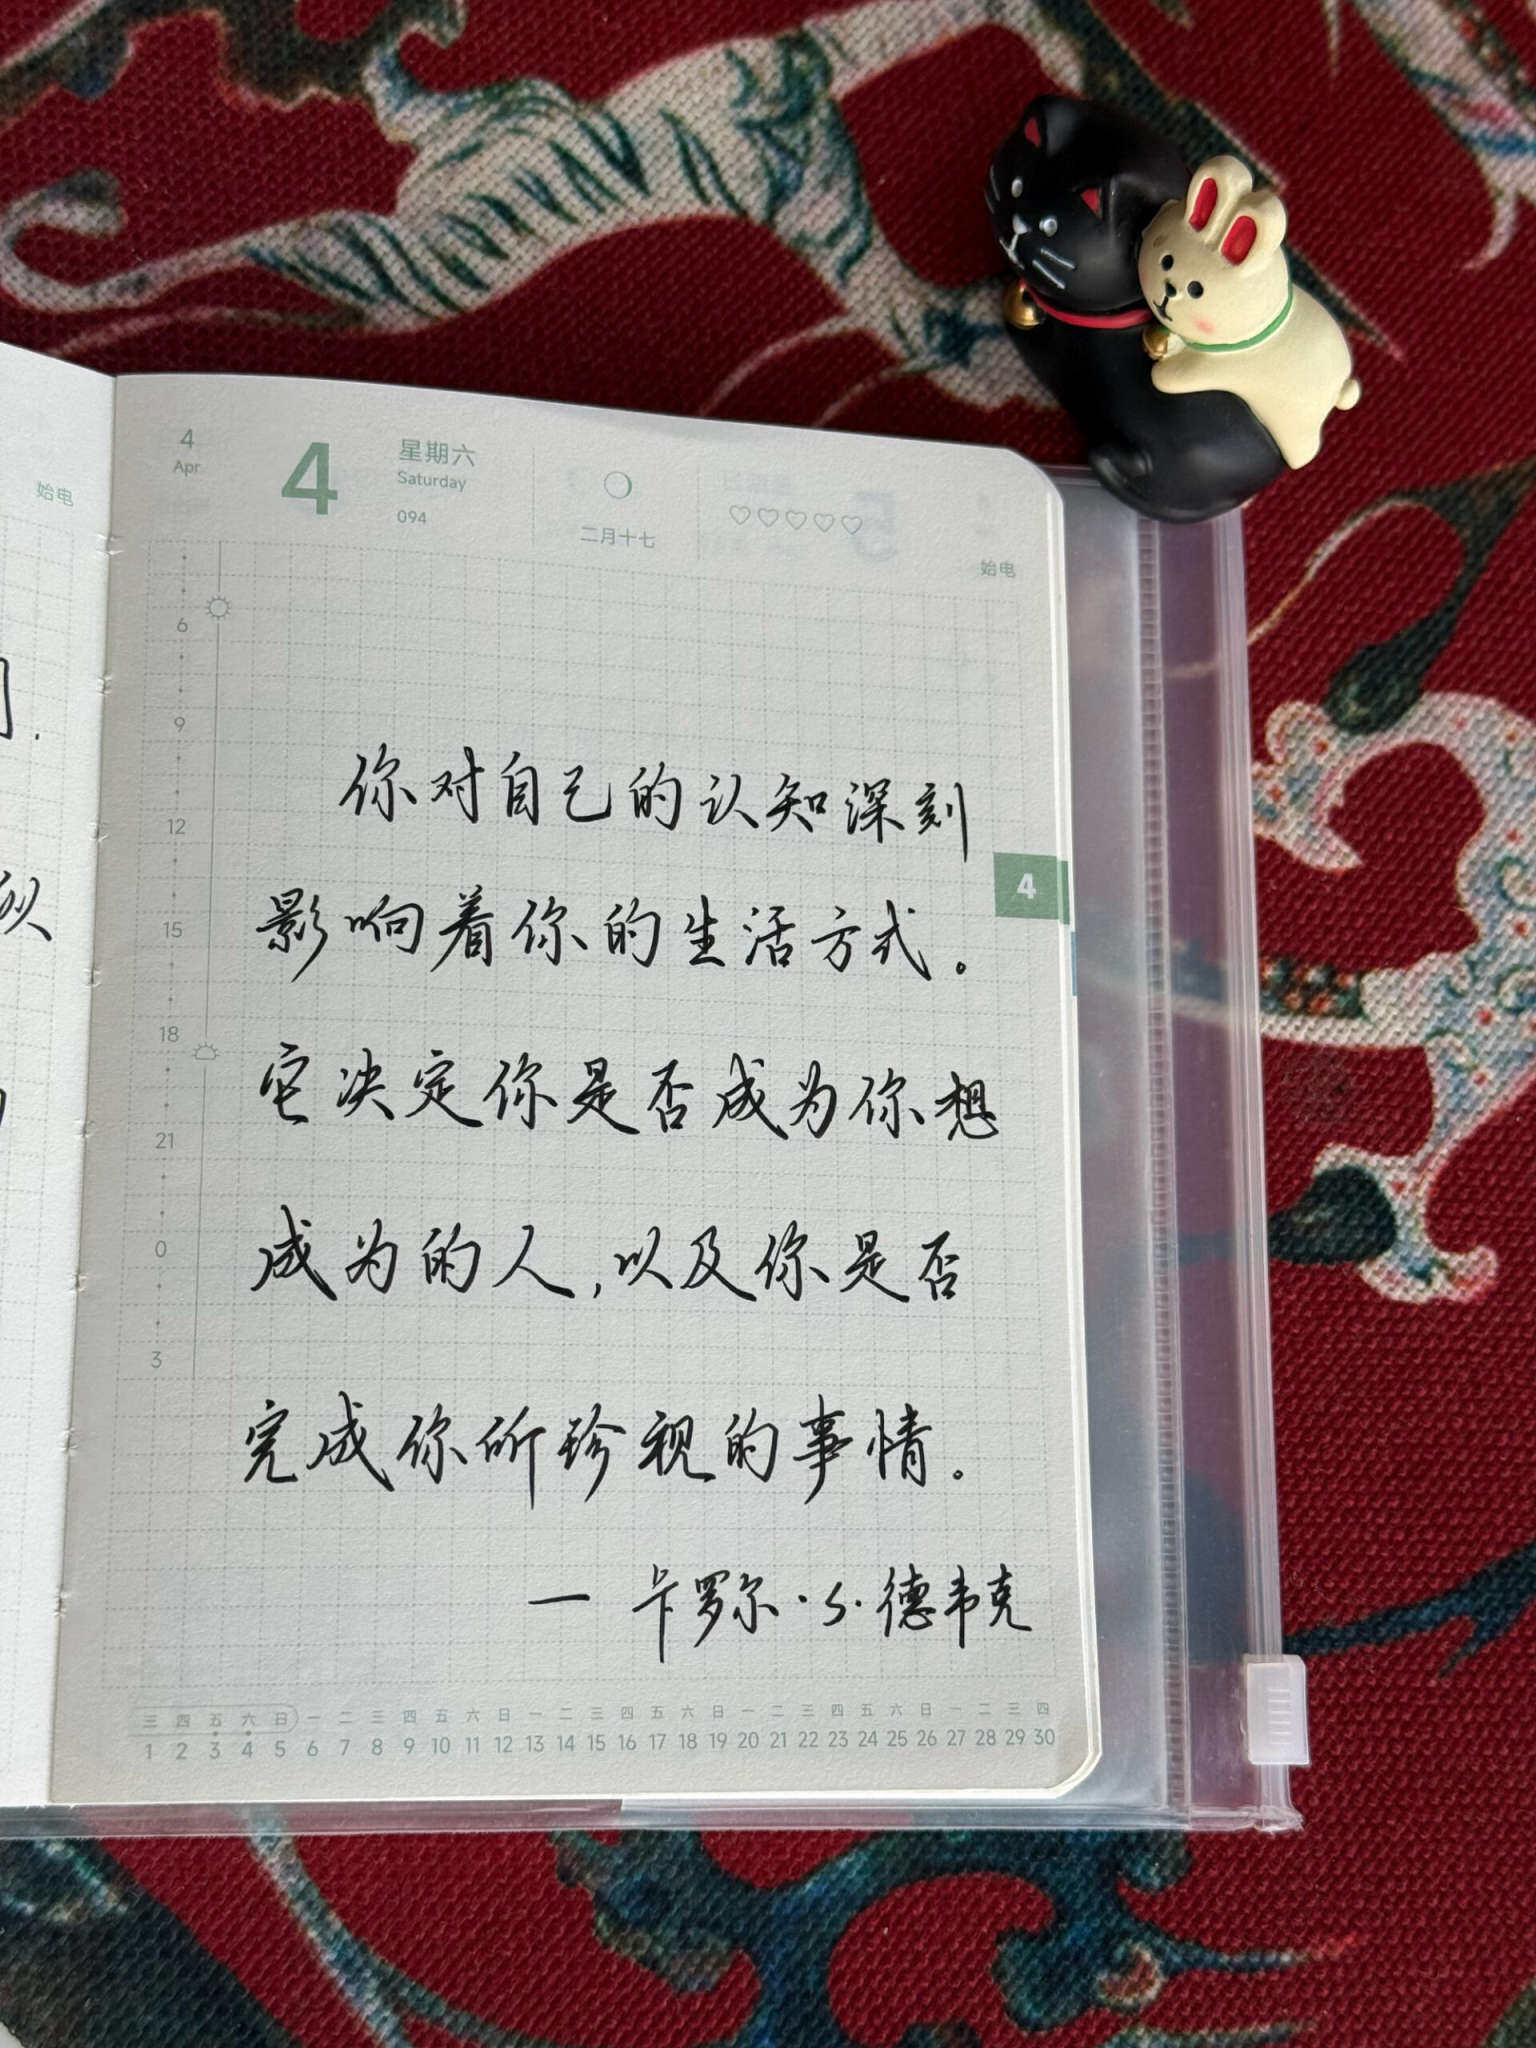 4
Apr
4
星期六
Saturday
094
二月十七
始电
始电
6
9
12
15
18
21
0
3
4
你对自己的认知深刻
影响着你的生活方式。
它决定你是否成为你想
成为的人,以及你是否
完成你所珍视的事情。
— 卡罗尔·S·德韦克
三 四 五 六 日 一 二 三 四 五 六 日 一 二 三 四 五 六 日 一 二 三 四 五 六 日 一 二 三 四
1 2 3 4 5 6 7 8 9 10 11 12 13 14 15 16 17 18 19 20 21 22 23 24 25 26 27 28 29 30